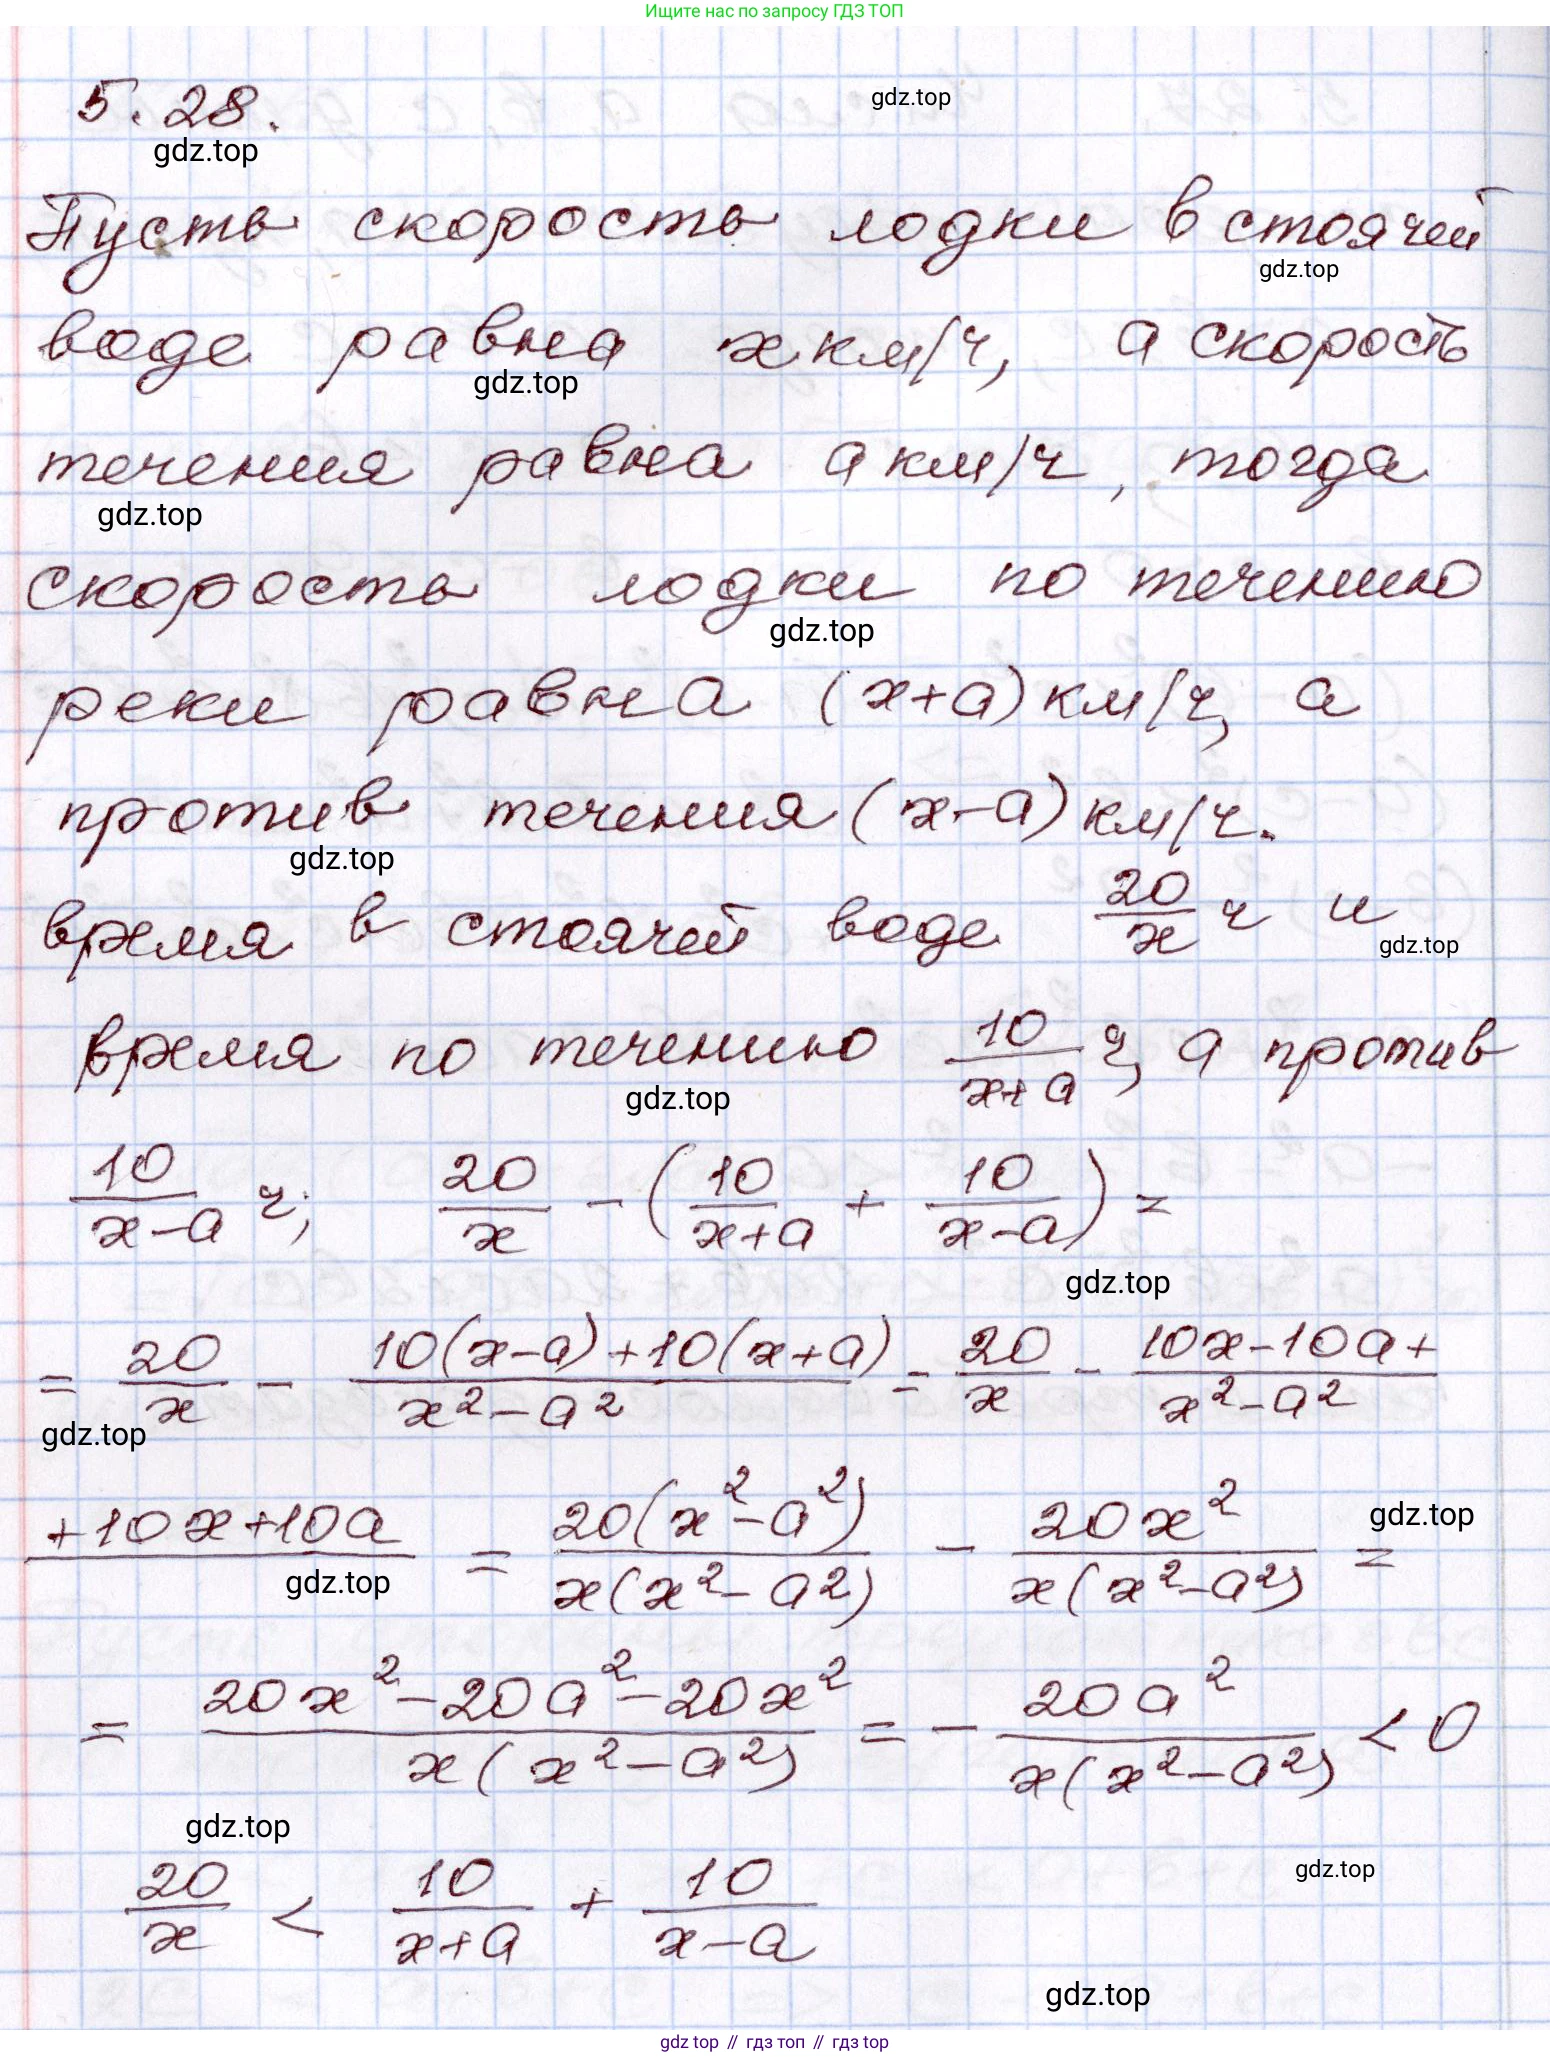 Ищите нас по запросу ГДЗ ТОП
5.28.
gdz.top
gdz.top
Пусть скорость лодки в стоячей
gdz.top
воде равна x км/ч, а скорость
gdz.top
течения равна a км/ч, тогда
gdz.top
скорость лодки по течению
gdz.top
реки равна (x+a) км/ч, а
против течения (x-a) км/ч.
gdz.top
время в стоячей воде 20/x ч и
gdz.top
время по течению 10/(x+a) ч, а против
gdz.top
10/(x-a) ч; 20/x - (10/(x+a) + 10/(x-a)) =
gdz.top
= 20/x - (10(x-a)+10(x+a))/(x²-a²) = 20/x - (10x-10a+)/(x²-a²)
gdz.top
+10x+10a = 20(x²-a²)/(x(x²-a²)) - 20x²/(x(x²-a²)) =
gdz.top
gdz.top
= (20x²-20a²-20x²)/(x(x²-a²)) = - 20a²/(x(x²-a²)) < 0
gdz.top
20/x < 10/(x+a) + 10/(x-a)
gdz.top
gdz.top
gdz top // гдз топ // гдз top